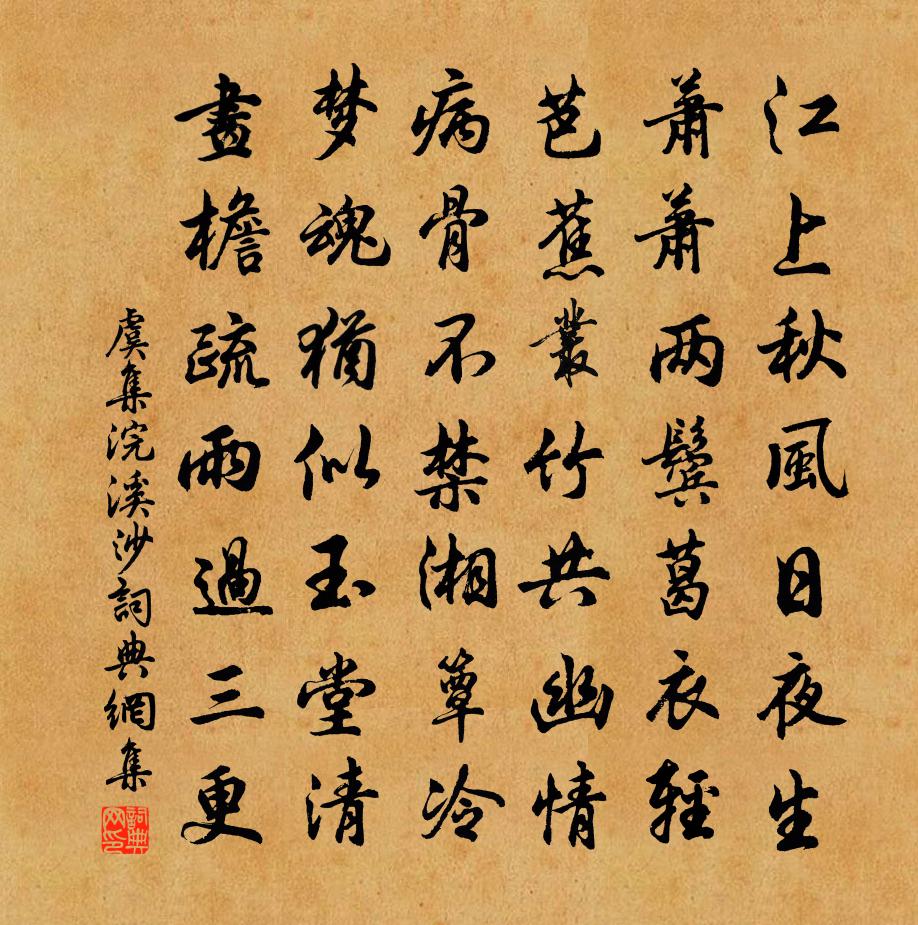 江上秋風日夜生
蕭蕭两鬓葛衣輕
芭蕉叢竹共幽情
病骨不禁湘簟冷
梦魂猶似玉堂清
畫檐疏雨過三更
虞集浣溪沙詞典網集
詞典网印